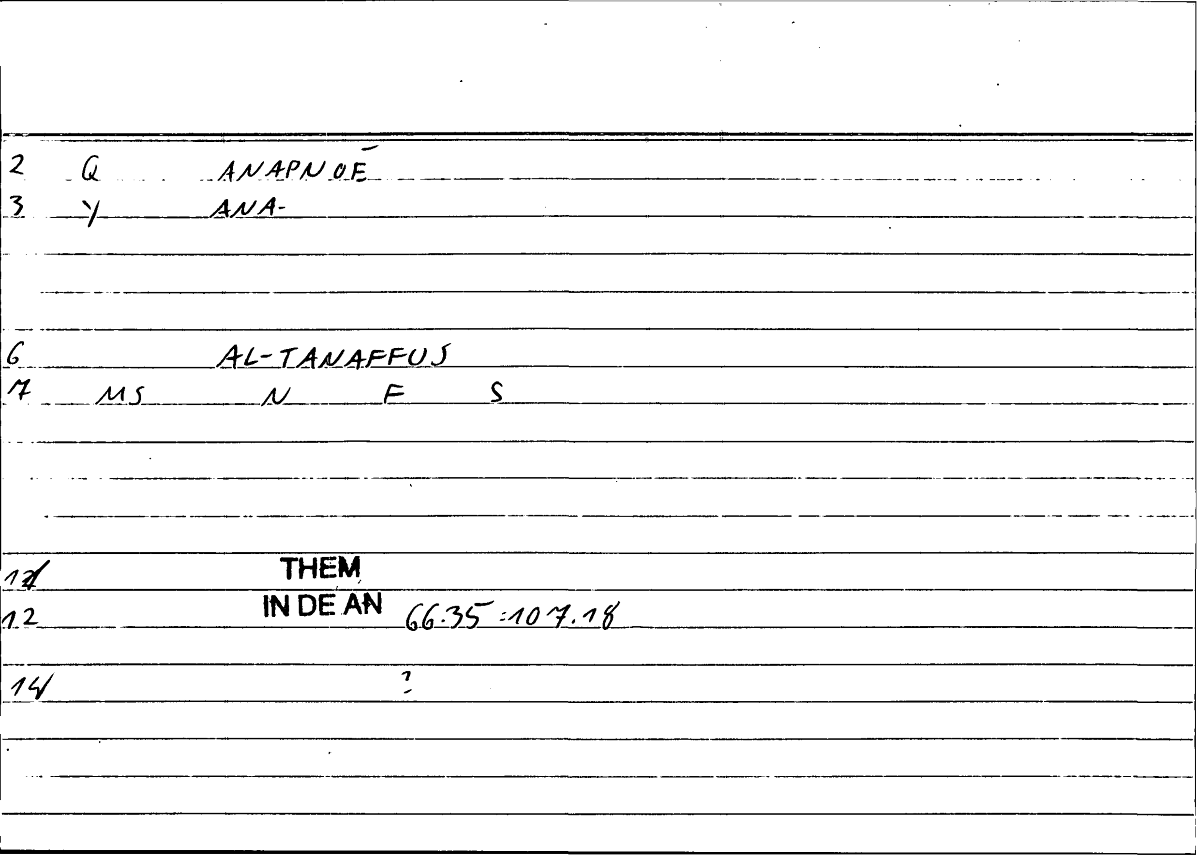 2 Q ANAPNOĒ
3 Y ANA-
6 AL-TANAFFUS
7 MS N F S
THEM
12 IN DE AN 66.35 =107.18
14 ?